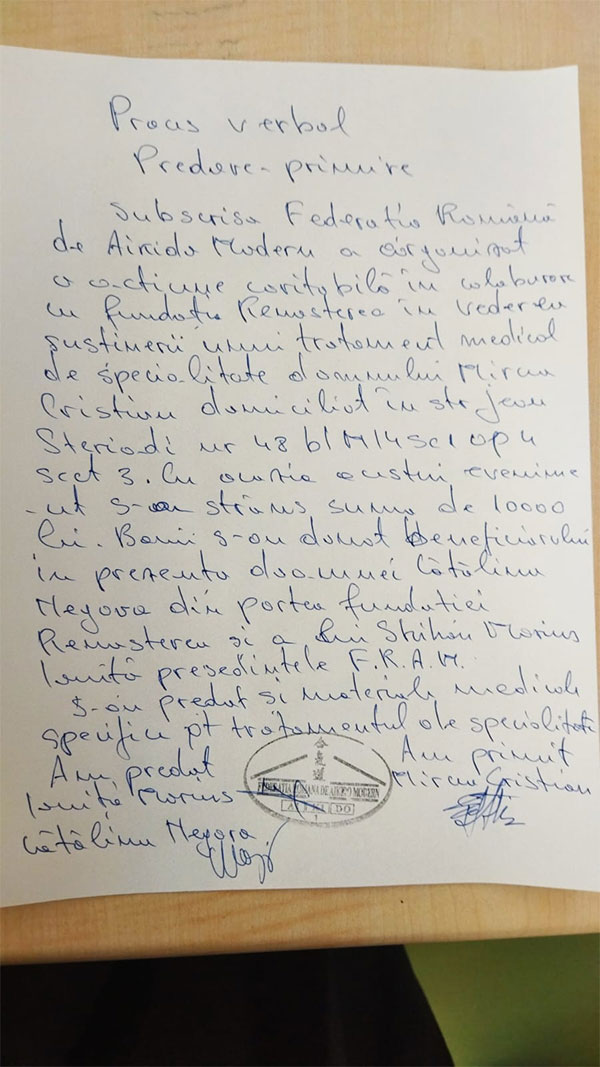 Proces verbal
Predare-primire
Subscrisa Federatia Română
de Aikido Modern a organizat
o actiune caritabilă în colaborare
cu fundatia Remasterea în vederea
sustinerii unui tratament medical
de specialitate domnului Mircea
Cristian domiciliat în str jean
Steriadi nr 48 bl M14 sc 1 ap 4
sect 3. Cu ocazia acestui evenime
-nt s-au strâns suma de 10000
lei. Banii s-au donat beneficiarului
în prezenta doamnei Cătălina
Negora din partea fundatiei
Remasterea si a lui Marius
Ionită presedintele F.R.A.M.
S-au predat si materiale medicale
specifice pt tratamentul de specialitate
Am predat
Am primit
Ionită Marius
Mircea Cristian
Cătălina Negora
合氣道
FEDERATIA ROMANA DE AIKIDO MODERN
AIKIDO
1